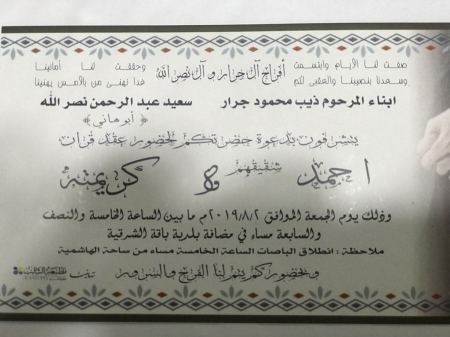 أفراح آل جرار و آل نصر الله
صفت لنا الأيام وابتسمت وحققت لنا أمانينا
وسعدنا بنصيبنا والعقبى لكم غدا نهنى من بالأمس يهنينا
ابناء المرحوم ذيب محمود جرار سعيد عبد الرحمن نصر الله
﴿ أبو هاني ﴾
يتشرفون بدعوة حضرتكم لحضور عقد قران
شقيقهم احمد و كريمته
وذلك يوم الجمعة الموافق ٢٠١٩/٨/٢م ما بين الساعة الخامسة والنصف
والسابعة مساء في مضافة بلدية باقة الشرقية
ملاحظة : انطلاق الباصات الساعة الخامسة مساء من ساحة الهاشمية
وبحضوركم يتم لنا الفرح والسرور